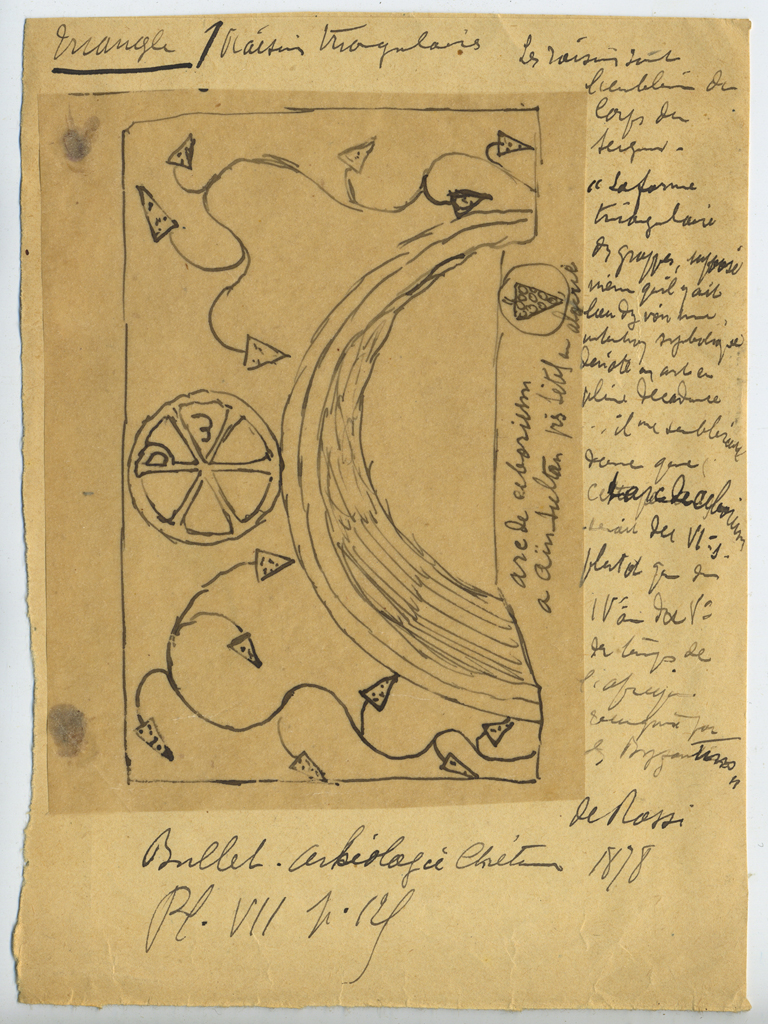 Triangle / Raisins triangulaires
Les raisins sont
l'emblème du
Corps du
Seigneur.
" La forme
triangulaire
des grappes, supposé
même qu'il y ait
lieu d'y voir une
intention symbolique
dénote un art en
pleine décadence
... il me semblerait
donc que
l'arc de ciborium
serait du VIe s.
plutôt que du
IVe ou du Ve
du temps de
l'afrique
reconquise par
les Byzantins "
de Rossi
arc de ciborium
a Aïn Sultan près Sétif en algérie
Bullet. archéologie Chrétienne 1878
Pl. VII p.